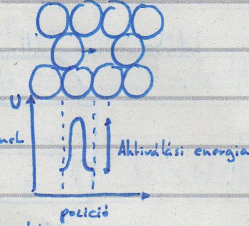 U
nek
Aktiválási energia
pozíció